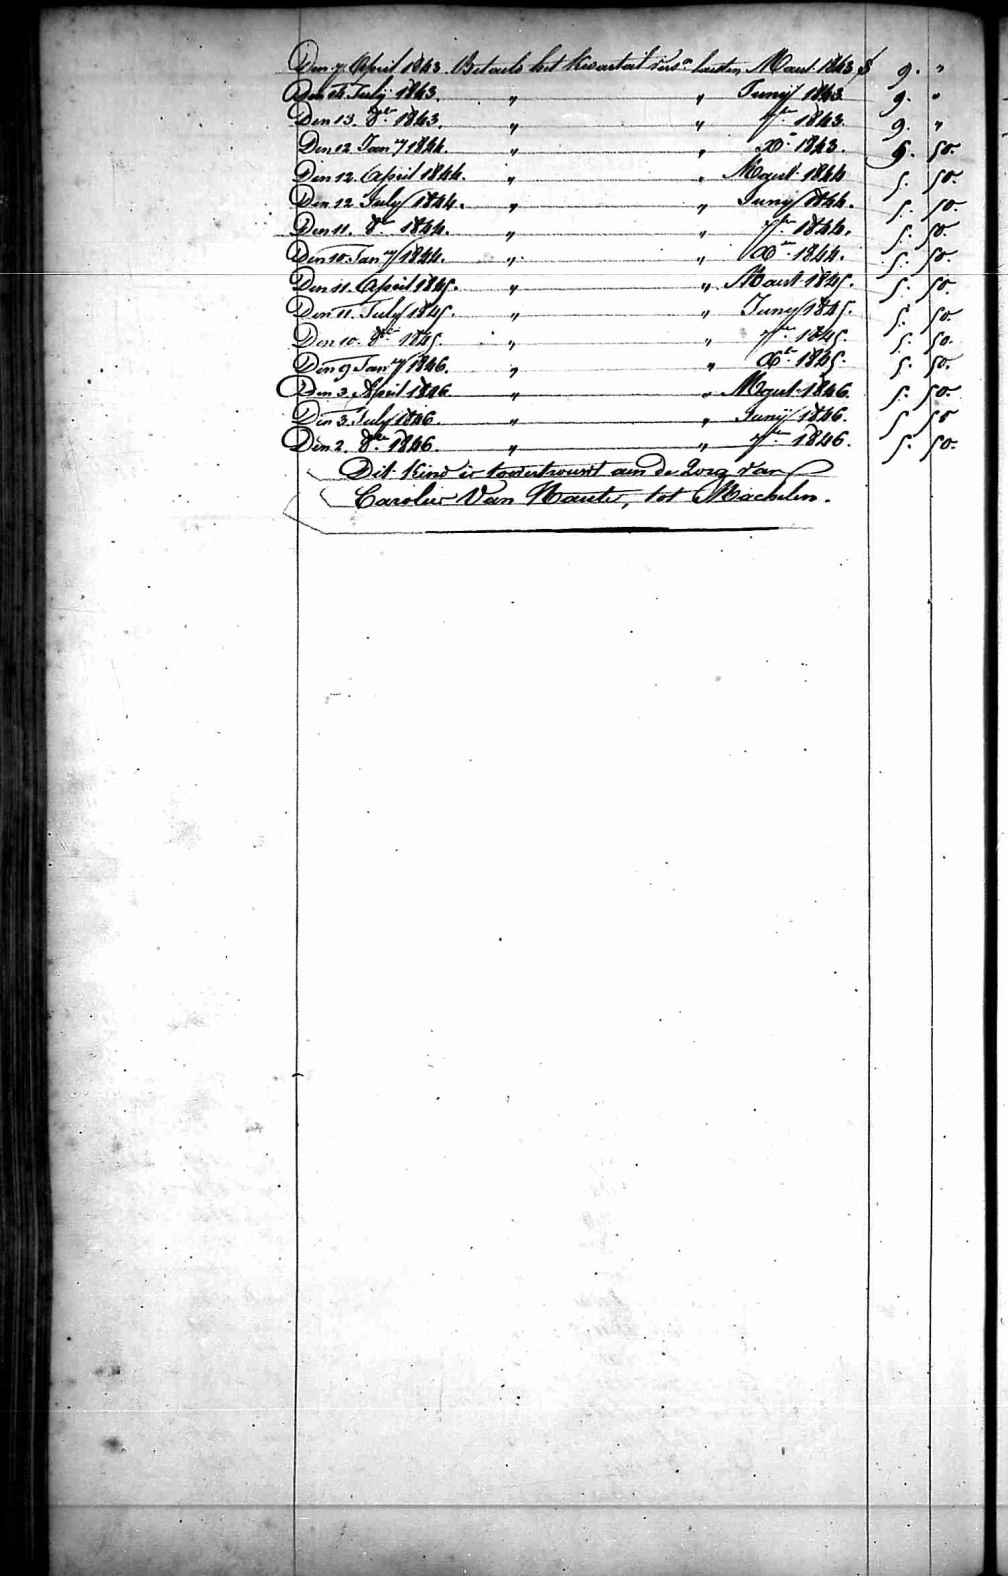 Den 7 April 1843 Betaelt het kwartael versn laesten Maert 1843 f 9. "
Den 14 July 1843. " " Junij 1843 9. "
Den 13. 8re 1843. " " 7re 1843. 9. "
Den 12 Jany 1844. " " Xre 1843. 5. 50.
Den 12. April 1844. " " Maert 1844 5. 50.
Den 12 July 1844. " " Juny 1844. 5. 50.
Den 11. 8re 1844. " " 7re 1844. 5. 50
Den 10 Jany 1844. " " Xre 1844. 5. 50.
Den 11. April 1845. " " Maert 1845. 5. 50.
Den 11. July 1845. " " Juny 1845. 5. 50.
Den 10. 8re 1845. " " 7re 1845. 5. 50.
Den 9 Jany 1846. " " Xre 1845. 5. 50.
Den 3 April 1846 " " Maert 1846 5. 50.
Den 3 July 1846. " " Junij 1846. 5 50
Den 2. 8re 1846. " " 7re 1846. 5. 50.
Dit Kind is toevertrouwt aen de Zorg van
Carolus Van Haute, tot Machelen.